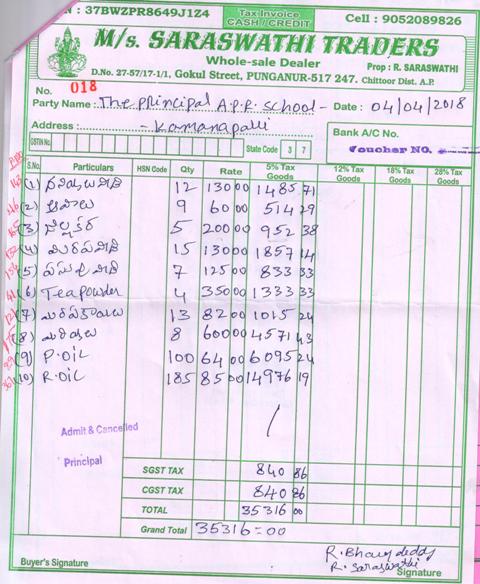 : 37BWZPR8649J1Z4 Tax Invoice Cell : 9052089826
CASH / CREDIT
M/s. SARASWATHI TRADERS
Whole-sale Dealer Prop : R. SARASWATHI
D.No. 27-57/17-1/1, Gokul Street, PUNGANUR-517 247. Chittoor Dist. A.P.
No. 018
Party Name : The principal A.P.R. School - Date : 04/04/2018
Address : - Kamanapalli Bank A/C No.
GSTIN No. State Code 3 7 Voucher NO.
S.No. Particulars HSN Code Qty Rate 5% Tax Goods 12% Tax Goods 18% Tax Goods 28% Tax Goods
(1) 12 130 00 1485 71
(2) 9 60 00 514 29
(3) 5 200 00 952 38
(4) 15 130 00 1857 14
(5) 7 125 00 833 33
(6) Tea powder 4 350 00 1333 33
(7) 13 82 00 1015 24
(8) 8 600 00 4571 43
(9) P.OIL 100 64 00 6095 24
(10) R.OIL 185 85 00 14976 19
Admit & Cancelled
Principal
SGST TAX 840 86
CGST TAX 840 86
TOTAL 35316 00
Grand Total 35316=00
R. Saraswathi
Buyer's Signature Signature